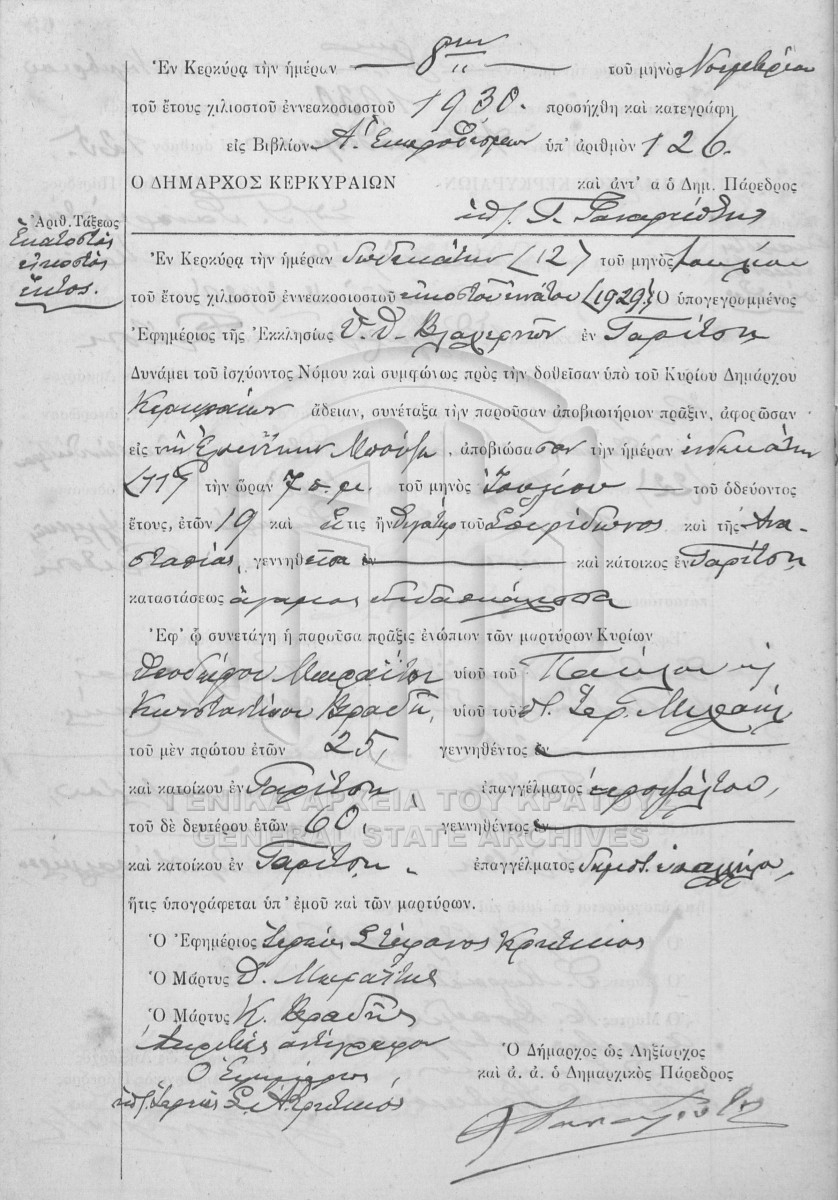 Ἐν Κερκύρᾳ τὴν ἡμέραν 8ην τοῦ μηνὸς Νοεμβρίου
τοῦ ἔτους χιλιοστοῦ ἐννεακοσιοστοῦ 1930. προσήχθη καὶ κατεγράφη
εἰς Βιβλίον Α. Ἐκπροθέσμων ὑπ' ἀριθμὸν 126.
Ο ΔΗΜΑΡΧΟΣ ΚΕΡΚΥΡΑΙΩΝ καὶ ἀντ' α ὁ Δημ. Πάρεδρος
Ἀριθ. Τάξεως
Ἑκατοστὸς
εἰκοστὸς
ἕκτος.
Ἐν Κερκύρᾳ τὴν ἡμέραν δωδεκάτην (12) τοῦ μηνὸς Ἰουλίου
τοῦ ἔτους χιλιοστοῦ ἐννεακοσιοστοῦ εἰκοστοῦ ἐνάτου (1929) Ὁ ὑπογεγραμμένος
Ἐφημέριος τῆς Ἐκκλησίας Ὑ. Θ. Βλαχερνῶν ἐν Γαρίτσῃ
Δυνάμει τοῦ ἰσχύοντος Νόμου καὶ συμφώνως πρὸς τὴν δοθεῖσαν ὑπὸ τοῦ Κυρίου Δημάρχου
Κερκυραίων ἄδειαν, συνέταξα τὴν παροῦσαν ἀποβιωτήριον πρᾶξιν, ἀφορῶσαν
εἰς τὴν Μπούζη, ἀποβιώσασαν τὴν ἡμέραν ἑνδεκάτην
(11) τὴν ὥραν 7 π.μ. τοῦ μηνὸς Ἰουλίου τοῦ ὁδεύοντος
ἔτους, ἐτῶν 19 καὶ ἥτις ἦν θυγάτηρ τοῦ Σπυρίδωνος καὶ τῆς Ἀνα-
στασίας, γεννηθεῖσα ἐν καὶ κάτοικος ἐν Γαρίτσῃ,
καταστάσεως ἄγαμος διδασκάλισσα
Ἐφ' ᾧ συνετάγη ἡ παροῦσα πρᾶξις ἐνώπιον τῶν μαρτύρων Κυρίων
Θεοδώρου υἱοῦ τοῦ Παύλου κ
Κωνσταντίνου Βραδῆ, υἱοῦ τοῦ Ἱερ. Μιχαὴλ
τοῦ μὲν πρώτου ἐτῶν 25, γεννηθέντος ἐν
καὶ κατοίκου ἐν Γαρίτσῃ ἐπαγγέλματος ἱεροψάλτου,
ΓΕΝΙΚΑ ΑΡΧΕΙΑ ΤΟΥ ΚΡΑΤΟΥΣ
τοῦ δὲ δευτέρου ἐτῶν 60, γεννηθέντος ἐν
GENERAL STATE ARCHIVES
καὶ κατοίκου ἐν Γαρίτσῃ ἐπαγγέλματος δημοτ. ὑπαλλήλου,
ἥτις ὑπογράφεται ὑπ' ἐμοῦ καὶ τῶν μαρτύρων.
Ὁ Ἐφημέριος Ἱερεὺς Στέφανος Κρητικὸς
Ὁ Μάρτυς Θ.
Ὁ Μάρτυς Κ. Βραδῆς
Ἀκριβὲς ἀντίγραφον
Ὁ Ἐφημέριος
Ὁ Δήμαρχος ὡς Ληξίαρχος
καὶ ἀ. ἀ. ὁ Δημαρχικὸς Πάρεδρος
ὑπ. Ἱερεὺς Σ. Κρητικός